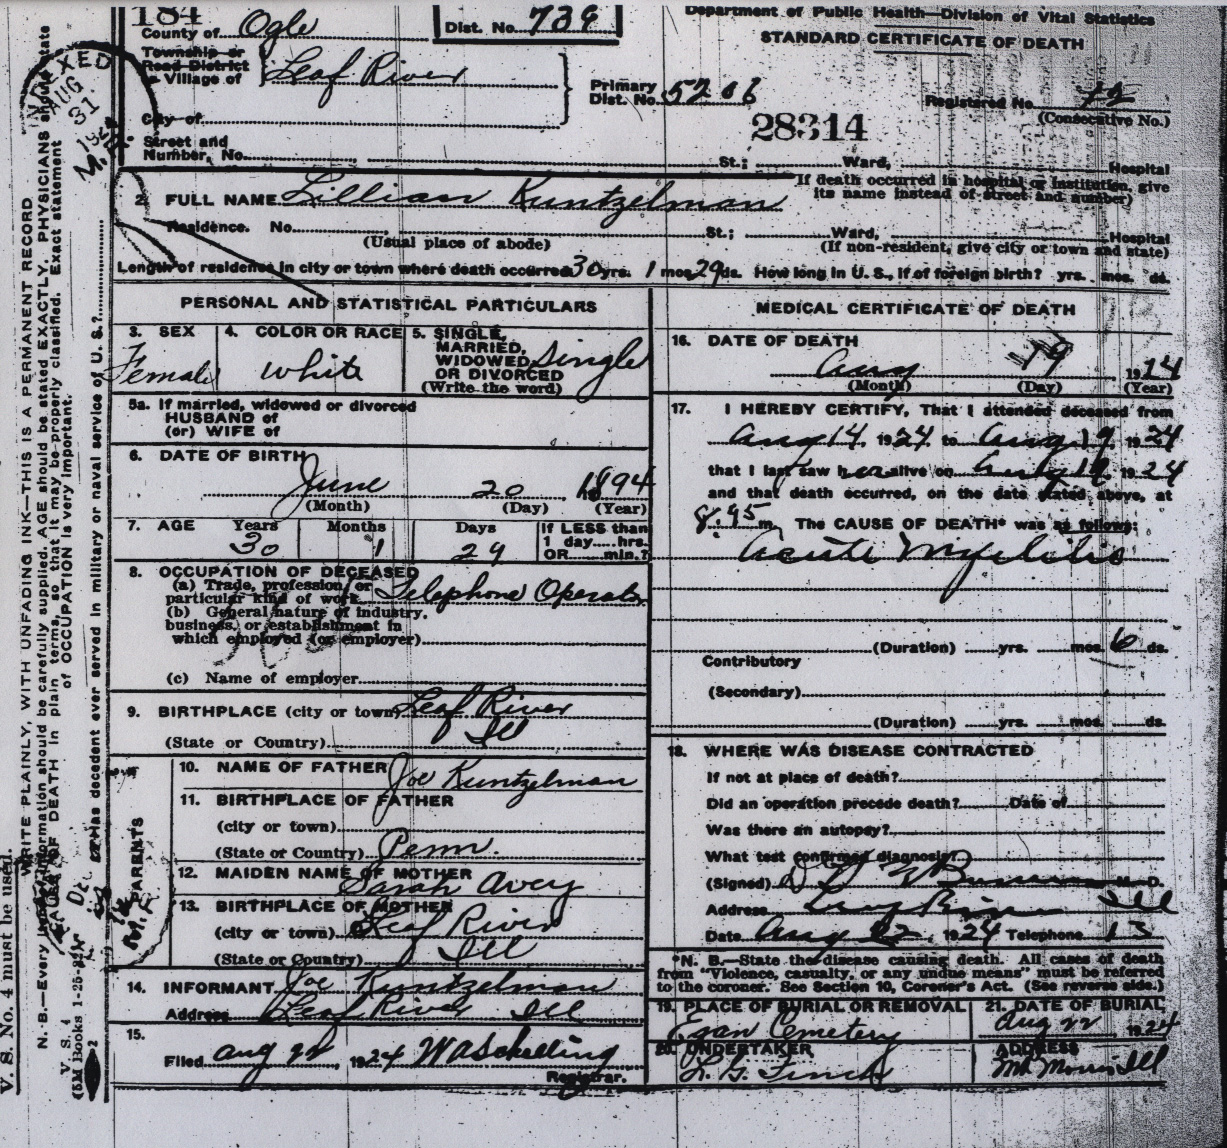 184
County of Ogle
Dist. No. 739
Department of Public Health—Division of Vital Statistics
STANDARD CERTIFICATE OF DEATH
Township or
Road District
Village of
Leaf River
City of
Primary
Dist. No. 5206
Registered No. 72
(Consecutive No.)
28314
Street and
Number, No. St.; Ward, Hospital
If death occurred in hospital or institution, give
its name instead of street and number)
2. FULL NAME Lillian Kuntzelman
Residence. No. St.; Ward, Hospital
(Usual place of abode) (If non-resident, give city or town and state)
Length of residence in city or town where death occurred 30 yrs. 1 mos. 29 ds. How long in U. S., if of foreign birth? yrs. mos. ds.
PERSONAL AND STATISTICAL PARTICULARS
3. SEX
Female
4. COLOR OR RACE
White
5. SINGLE,
MARRIED,
WIDOWED,
OR DIVORCED
(Write the word)
Single
5a. If married, widowed or divorced
HUSBAND of
(or) WIFE of
6. DATE OF BIRTH
June 20 1894
(Month) (Day) (Year)
7. AGE Years Months Days If LESS than
1 day....hrs.
OR......min.?
30 1 29
8. OCCUPATION OF DECEASED
(a) Trade, profession, or
particular kind of work Telephone Operator
(b) General nature of industry,
business, or establishment in
which employed (or employer)
(c) Name of employer
9. BIRTHPLACE (city or town) Leaf River
(State or Country) Ill
PARENTS
10. NAME OF FATHER Joe Kuntzelman
11. BIRTHPLACE OF FATHER
(city or town)
(State or Country) Penn.
12. MAIDEN NAME OF MOTHER
Sarah Avey
13. BIRTHPLACE OF MOTHER
(city or town) Leaf River
(State or Country) Ill
14. INFORMANT Joe Kuntzelman
Address Leaf River Ill
15.
Filed Aug 22, 1924 W A Schelling
Registrar.
MEDICAL CERTIFICATE OF DEATH
16. DATE OF DEATH
Aug 19 1924
(Month) (Day) (Year)
17. I HEREBY CERTIFY, That I attended deceased from
Aug 14, 1924 to Aug 19 1924
that I last saw her alive on Aug 19 1924
and that death occurred, on the date stated above, at
m. The CAUSE OF DEATH* was as follows:
Acute Myelitis
(Duration) yrs. mos. 6 ds.
Contributory
(Secondary)
(Duration) yrs. mos. ds.
18. WHERE WAS DISEASE CONTRACTED
If not at place of death?
Did an operation precede death? Date of
Was there an autopsy?
What test confirmed diagnosis
(Signed) M. D.
Address Leaf River Ill
Date Aug 22, 1924 Telephone 13
*N. B.—State the disease causing death. All cases of death
from "Violence, casualty, or any undue means" must be referred
to the coroner. See Section 10, Coroner's Act. (See reverse side.)
19. PLACE OF BURIAL OR REMOVAL
Evan Cemetery
21. DATE OF BURIAL
Aug 22 1924
20. UNDERTAKER
L. G. Finch
ADDRESS
Mt Morris Ill
INDEXED
AUG
31
192
WRITE PLAINLY, WITH UNFADING INK—THIS IS A PERMANENT RECORD
N. B.—Every information should be carefully supplied. AGE should be stated EXACTLY. PHYSICIANS should state
CAUSE OF DEATH in plain terms, so that it may be properly classified. Exact statement
of OCCUPATION is very important.
Has decedent ever served in military or naval service of U. S.?
V. S. No. 4 must be used.
V. S. 4
(5M Books 1-25-22)
2